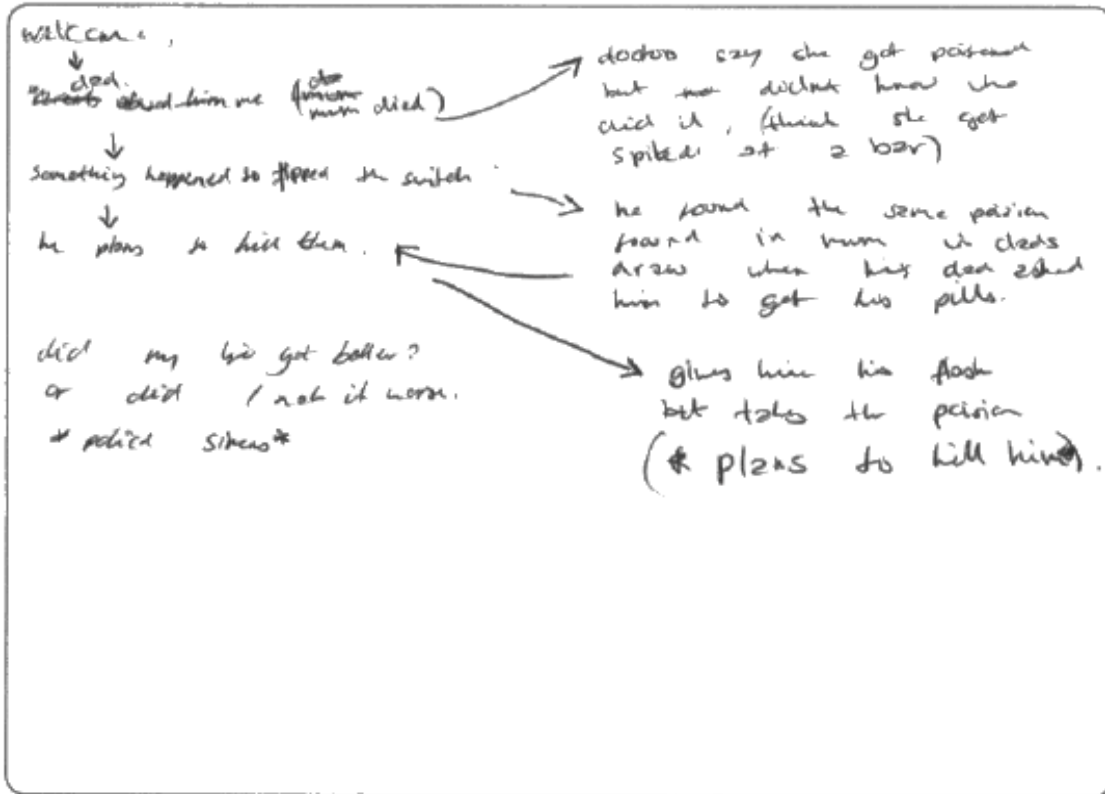 dad.
him me (mum died)
something happened so flipped the switch.
he plans to kill them.
did my life get better?
or did I make it worse.
*policd sirens*
doctors say she got poisened
but didnt know who
did it, (think she got
spiked at a bar)
he found the same poision
found in mum in dads
draw when his dad asked
him to get his pills.
gives him his flask
but takes the poision
(* plans to kill him*).